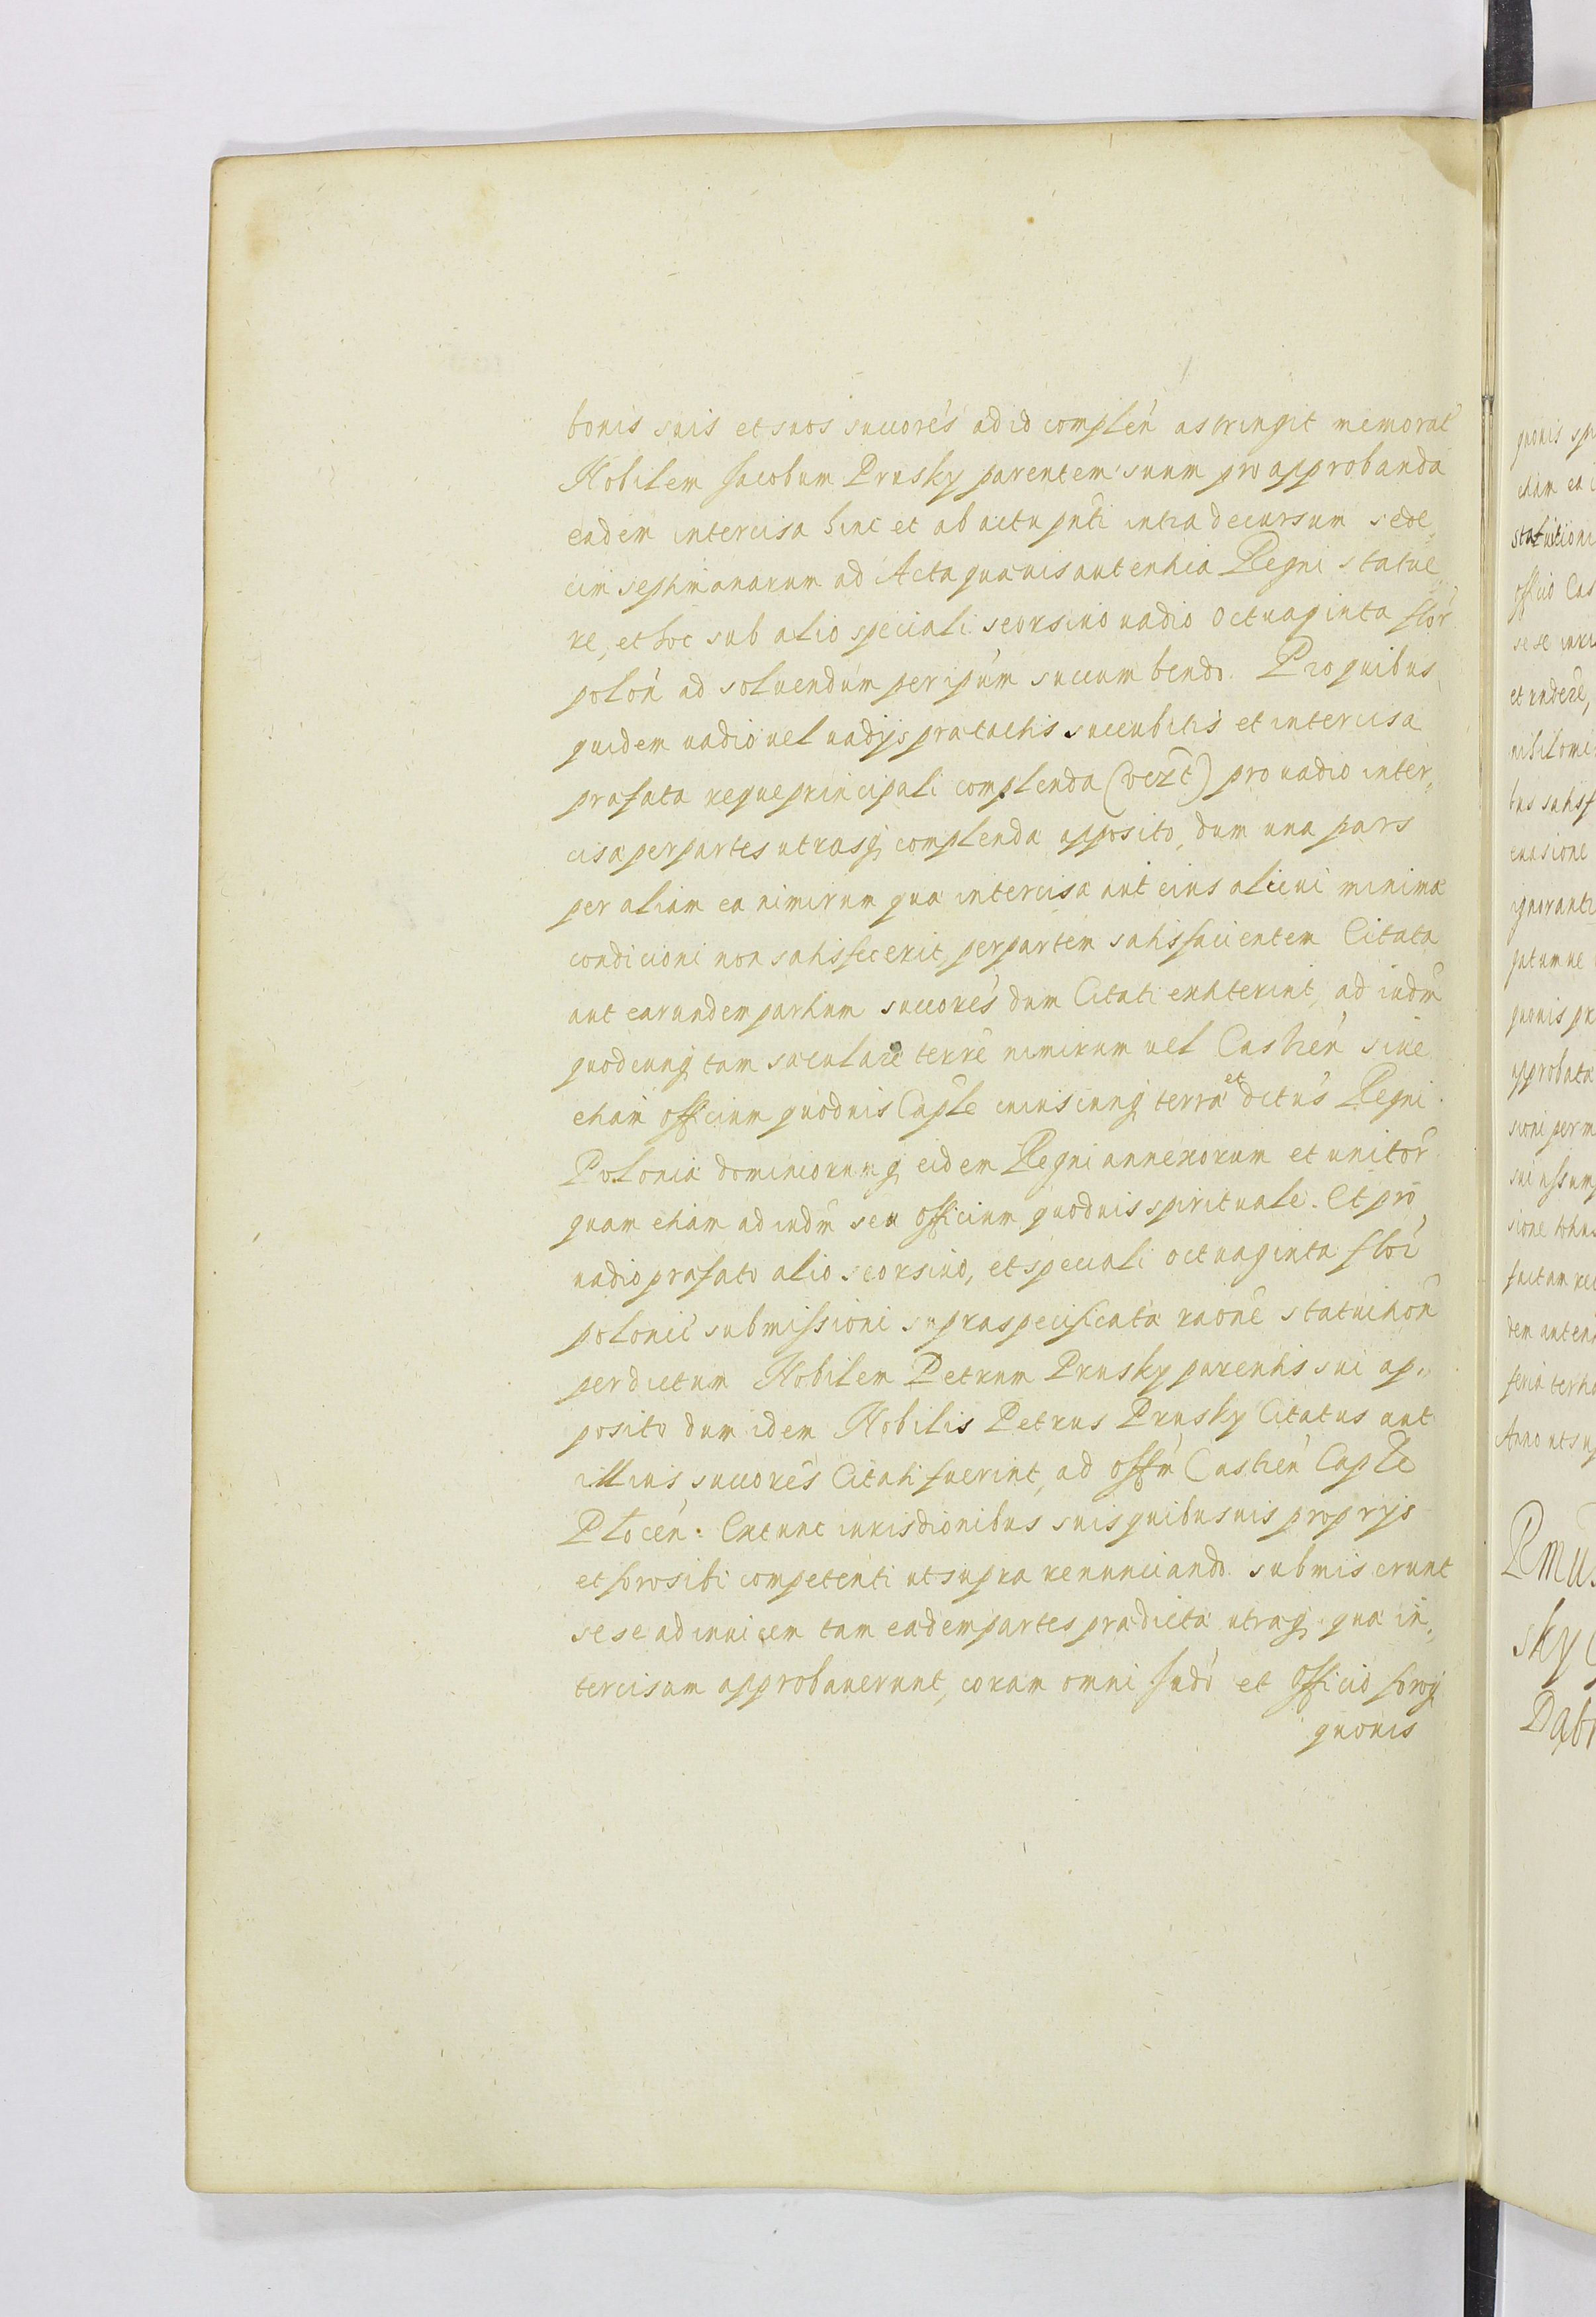 bonis suis et suos succores ad id complen astringit memorat
Nobilem Jacobum Prusky parentem suum pro approbanda
eadem intercisa hinc et ab actu pnti intra decursum sede„
cim septimanarum ad Acta quævis autentica Regni statue„
re, et hoc sub alio speciali seorsivo vadio Octuaginta flor
polon ad soluendum per ipum succumbendo. Pro quibus
quidem vadio vel vadys prætactis succubitis et intercisa
præfata reque principali complenda (vert) pro vadio inter„
cisa per partes utrasq complenda apposito, dum una pars
per aliam ea nimirum quæ intercisæ aut eius alicui minimæ
condicioni non satisfecerit, per partem satisfacientem Citata
aut earundem partium succores dum Citati extiterint, ad iudm
quodcunq tam sæculare terre nimirum vel Castren siue
etiam officium quoduis Caple cuiuscunq terræ et dctus Regni
Poloniæ dominiorumq eidem Regni annexorum et unitor
quam etiam ad iudm seu Officium quoduis spirituale. Et pro
vadio præfato alio seorsivo, et speciali octuaginta flor
polonic submissioni supraspecificatæ raone statuition
per dictum Nobilem Petrum Prusky parentis sui ap„
posito dum idem Nobilis Petrus Prusky Citatus aut
illius succores Citati fuerint, ad offm Castren Caple
Plocen. Extunc iurisdionibus suis quibusuis proprys
et foro sibi competenti ut supra renunciando submiserunt
sese ad inuicem tam eadem partes prædictæ utræq, quæ in„
tercisam approbauerunt, coram omni Judo et Officio foroq
quouis